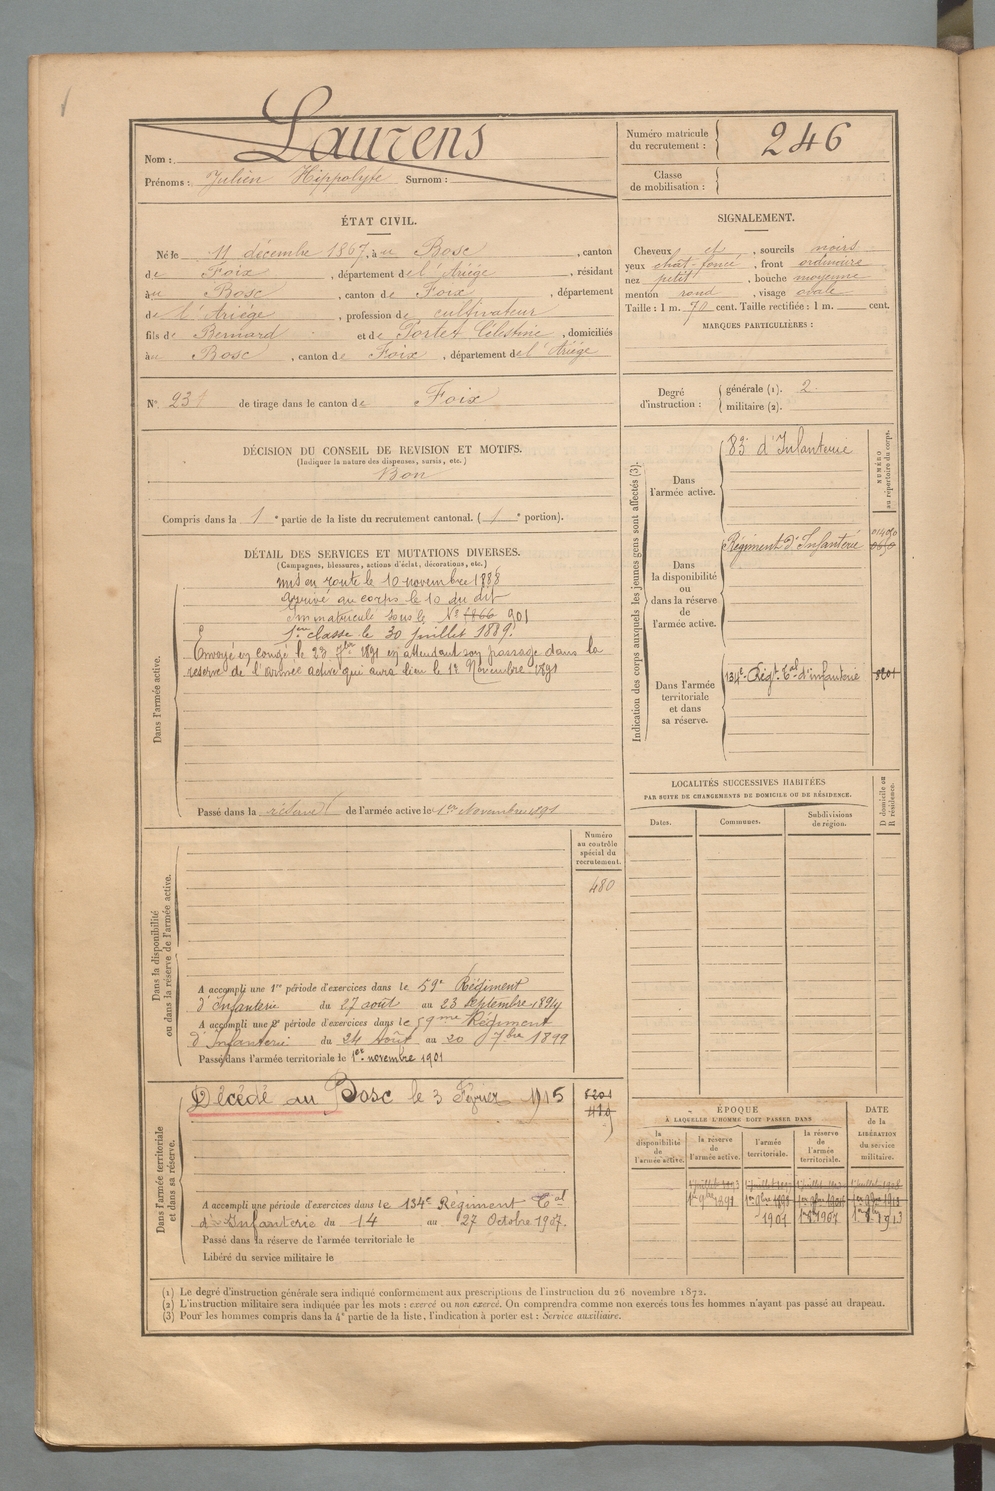 Laurens
Nom :
Prénoms : Julien Hippolyte Surnom :
Numéro matricule du recrutement : 246
Classe de mobilisation :
ÉTAT CIVIL.
Né le 11 décembre 1867, à u Bosc, canton
de Foix, département de l'Ariége, résidant
à u Bosc, canton de Foix, département
de l'Ariége, profession de cultivateur
fils de Bernard et de Portet Célestine, domiciliés
à u Bosc, canton de Foix, département de l'Ariége
N° de tirage dans le canton de Foix
SIGNALEMENT.
Cheveux et, sourcils noirs
yeux chat-foncé, front ordinaire
nez petit, bouche moyenne
menton rond, visage ovale
Taille : 1 m. 70 cent. Taille rectifiée : 1 m. cent.
MARQUES PARTICULIÈRES :
Degré d'instruction : générale (1). 2
militaire (2).
DÉCISION DU CONSEIL DE REVISION ET MOTIFS.
(Indiquer la nature des dispenses, sursis, etc.)
Bon
Compris dans la 1e partie de la liste du recrutement cantonal. (1e portion).
DÉTAIL DES SERVICES ET MUTATIONS DIVERSES.
(Campagnes, blessures, actions d'éclat, décorations, etc.)
Dans l'armée active.
mis en route le 10 novembre 1888
arrivé au corps le 10 du dit
Immatriculé sous le N° 1866 901
1ère classe le 30 juillet 1889.
Envoyé en congé le 23 7bre 1891 en attendant son passage dans la
réserve de l'armée active qui aura lieu le 1er Novembre 1891
Passé dans la réserve de l'armée active le 1er Novembre 1891
Indication des corps auxquels les jeunes gens sont affectés (3).
NUMÉRO au répertoire du corps.
Dans l'armée active.
83e d'Infanterie
Dans la disponibilité ou dans la réserve de l'armée active.
Régiment d'Infanterie
Dans l'armée territoriale et dans sa réserve.
134e Régt Cal d'infanterie
LOCALITÉS SUCCESSIVES HABITÉES
PAR SUITE DE CHANGEMENTS DE DOMICILE OU DE RÉSIDENCE.
Dates. Communes. Subdivisions de région. D domicile ou R résidence.
Dans la disponibilité ou dans la réserve de l'armée active.
Numéro au contrôle spécial du recrutement.
480
A accompli une 1re période d'exercices dans le 59e Régiment
d'Infanterie du 27 août au 23 septembre 1894
A accompli une 2e période d'exercices dans le 59me Régiment
d'Infanterie du 24 Août au 20 7bre 1899
Passé dans l'armée territoriale le 1er novembre 1901
Dans l'armée territoriale et dans sa réserve.
Décédé au Bosc le 3 Février 1915
A accompli une période d'exercices dans le 134e Régiment Cal
d'Infanterie du 14 au 27 Octobre 1907.
Passé dans la réserve de l'armée territoriale le
Libéré du service militaire le
ÉPOQUE
À LAQUELLE L'HOMME DOIT PASSER DANS
DATE de la LIBÉRATION du service militaire.
la disponibilité de l'armée active. la réserve de l'armée active. l'armée territoriale. la réserve de l'armée territoriale.
(1) Le degré d'instruction générale sera indiqué conformément aux prescriptions de l'instruction du 26 novembre 1872.
(2) L'instruction militaire sera indiquée par les mots : exercé ou non exercé. On comprendra comme non exercés tous les hommes n'ayant pas passé au drapeau.
(3) Pour les hommes compris dans la 4e partie de la liste, l'indication à porter est : Service auxiliaire.